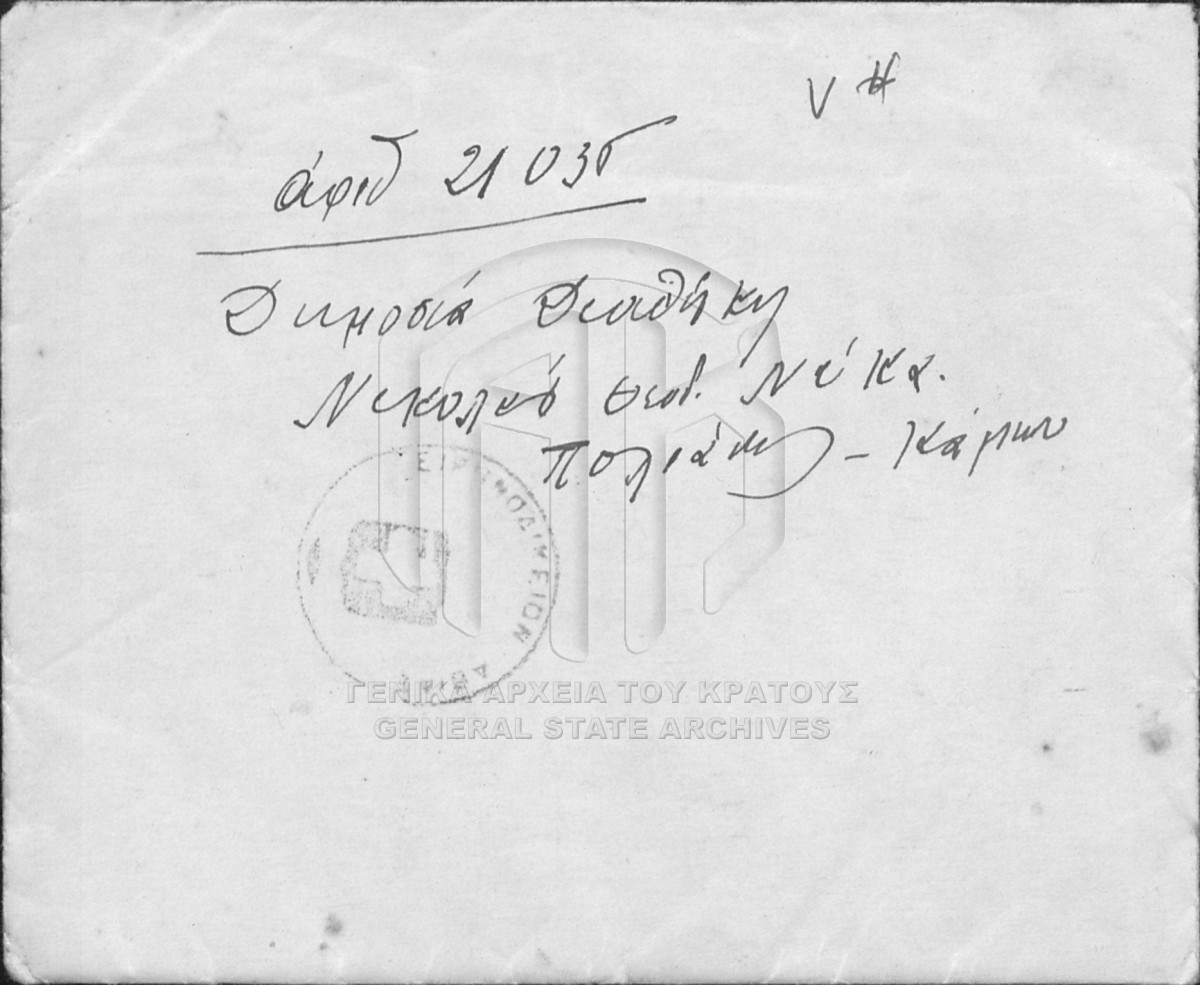 ἀριθ 21035
Δημοσία Διαθήκη
Νικολάου Θεοδ. Νάκα.
Πολιάνης – Κάμπου
ΕΙΡΗΝΟΔΙΚΕΙΟΝ
ΓΕΝΙΚΑ ΑΡΧΕΙΑ ΤΟΥ ΚΡΑΤΟΥΣ
GENERAL STATE ARCHIVES